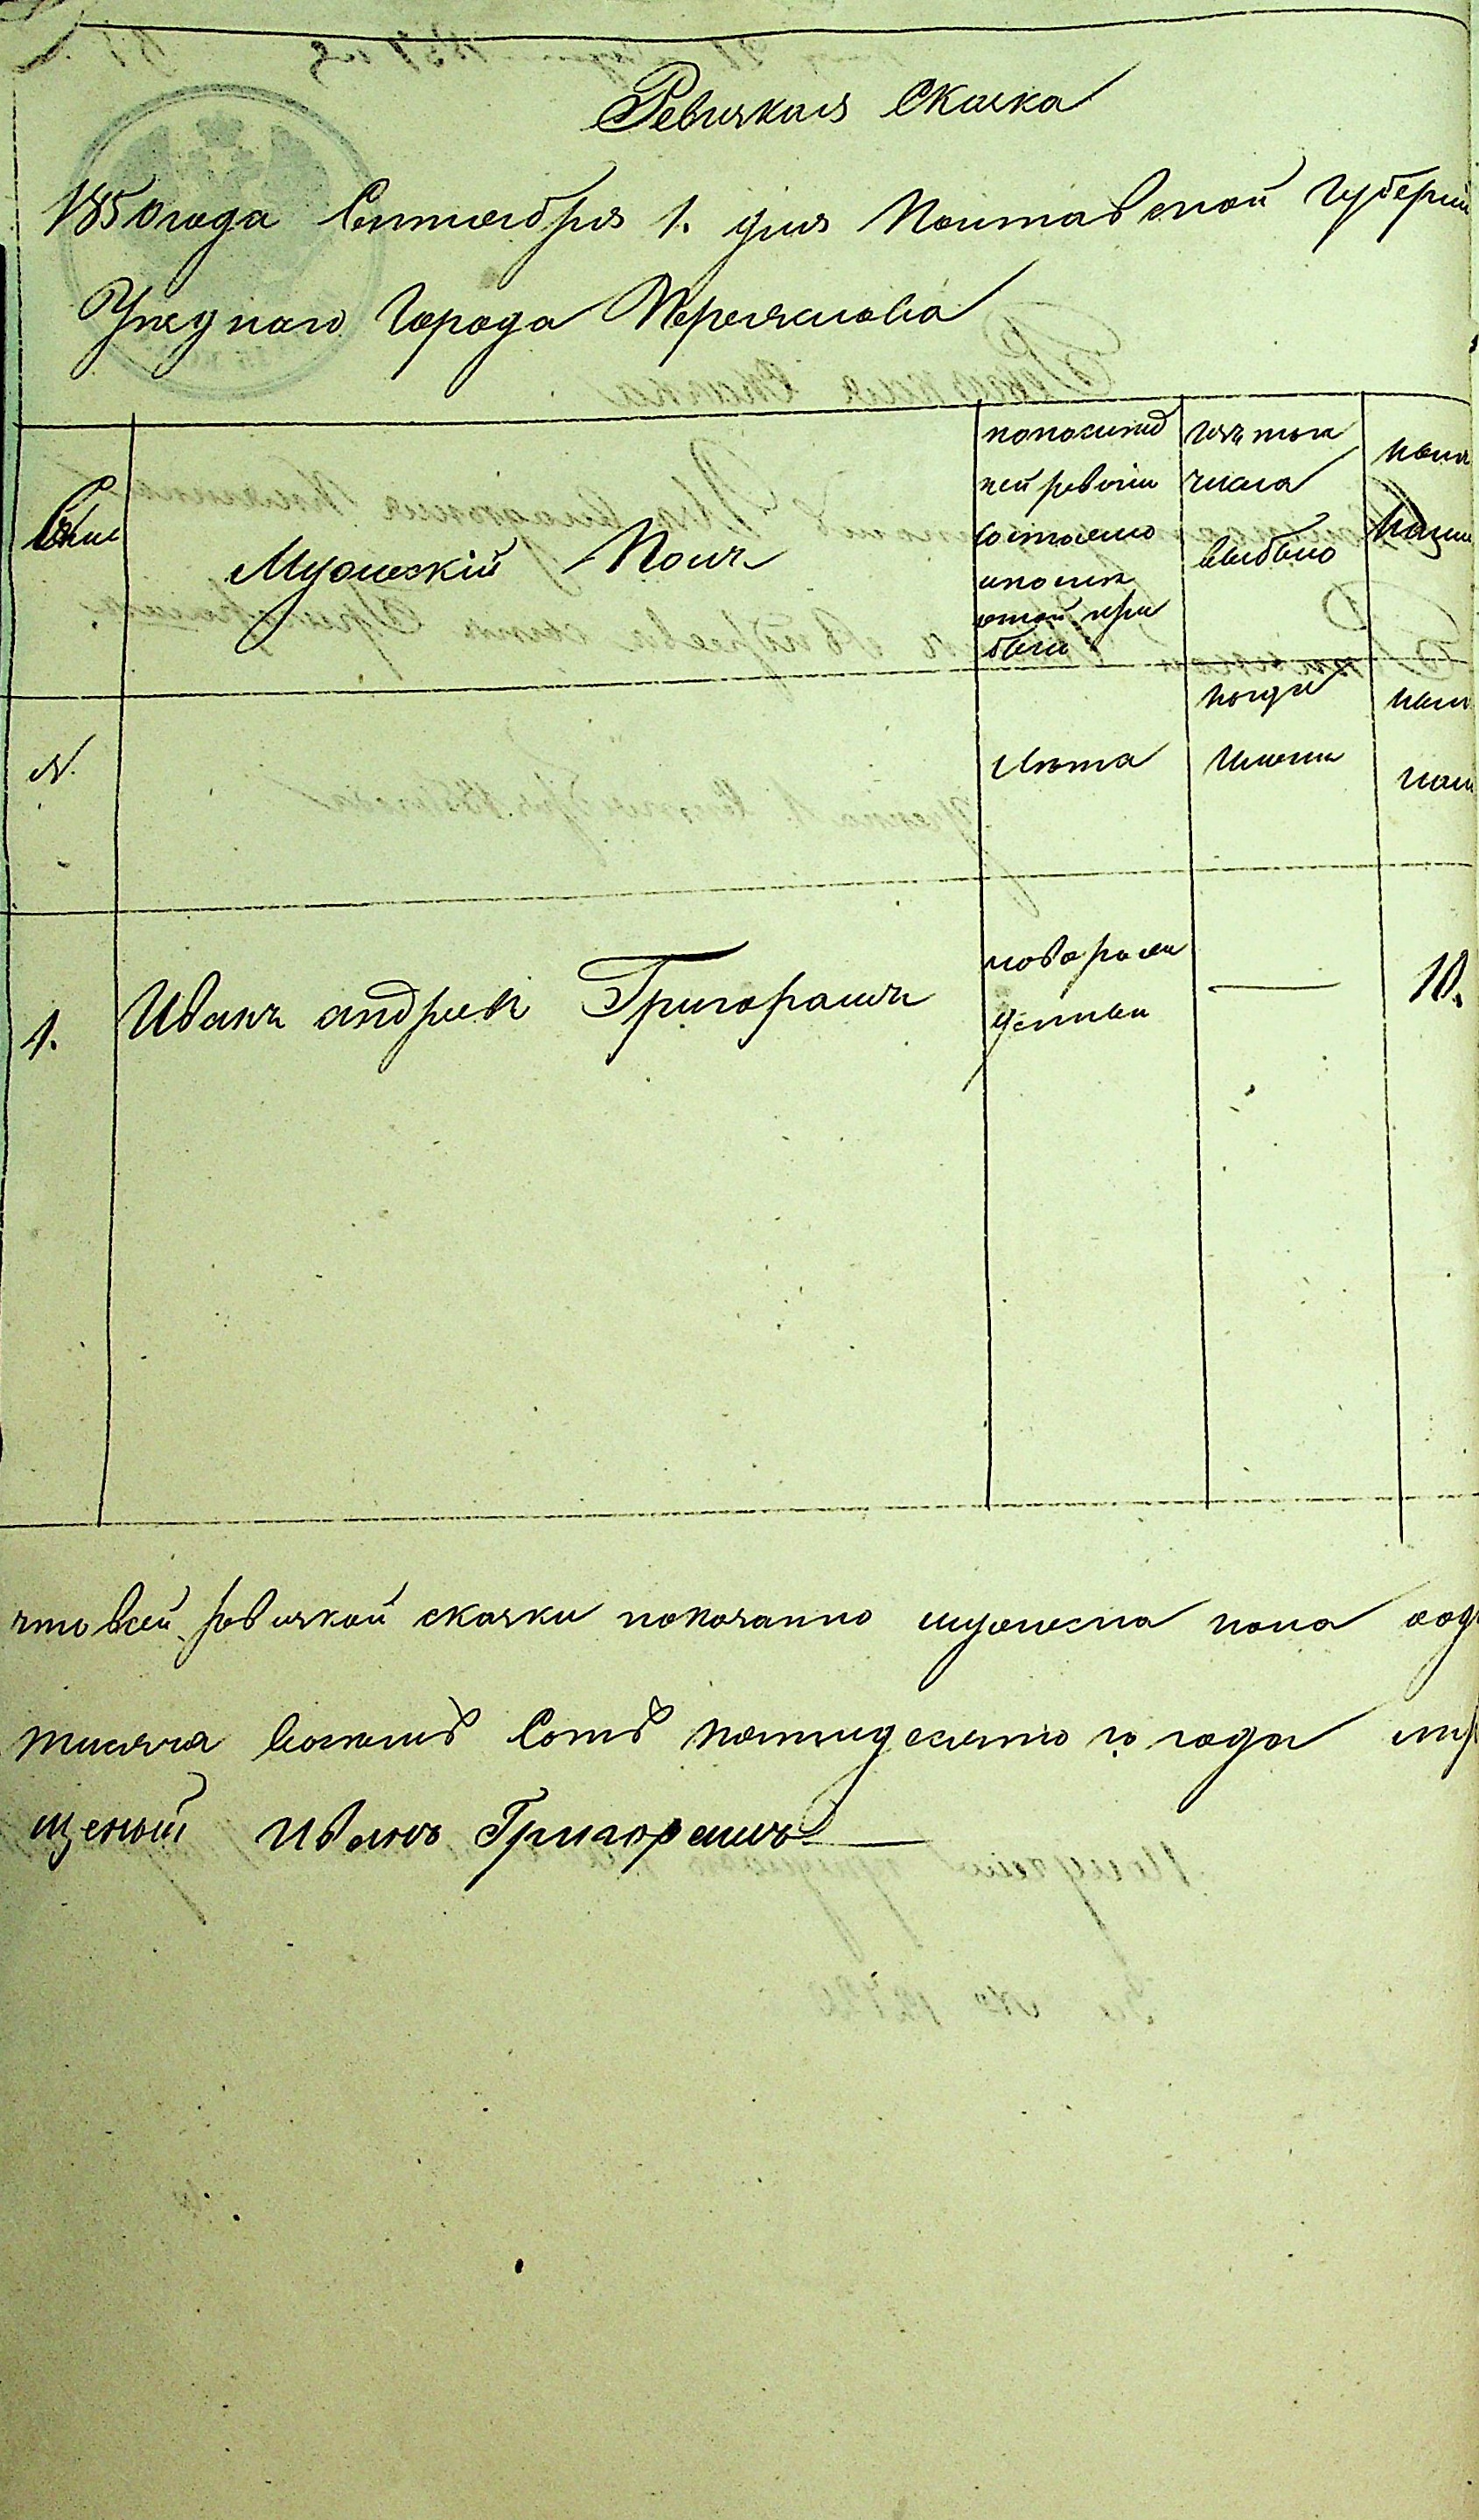 Ревизкая Скаска
1850 года Сентября 1. дня Полтавской губерніи
Уезднаго Города Переяслова
Семьи
Мужескій Полъ
по последней ревизіи состояло и после оной прибыло
изъ того числа выбыло
ныне
N.
Лета
когда имено
1. Иванъ андреевъ Григорашъ
10.
что всей ревизкой скаски показанно мужеска пола
тисяча восемъ Сотъ пятидесятого года
щеный Иванъ Григорашъ